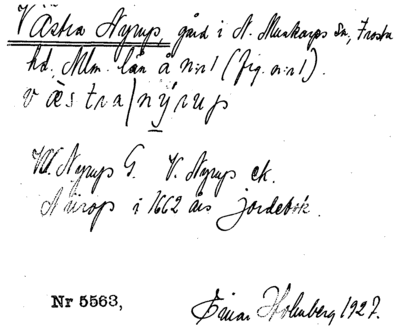 Västra Nyrup, gård i N. Munkarps sn, Frosta
hd, Mlm. län å nr 1 (fig. nr 1).
västra/nyrup
W. Nyrup G. V. Nyrup ek.
Nürop i 1662 års jordebok.
Nr 5563, Einar Holmberg 1927.